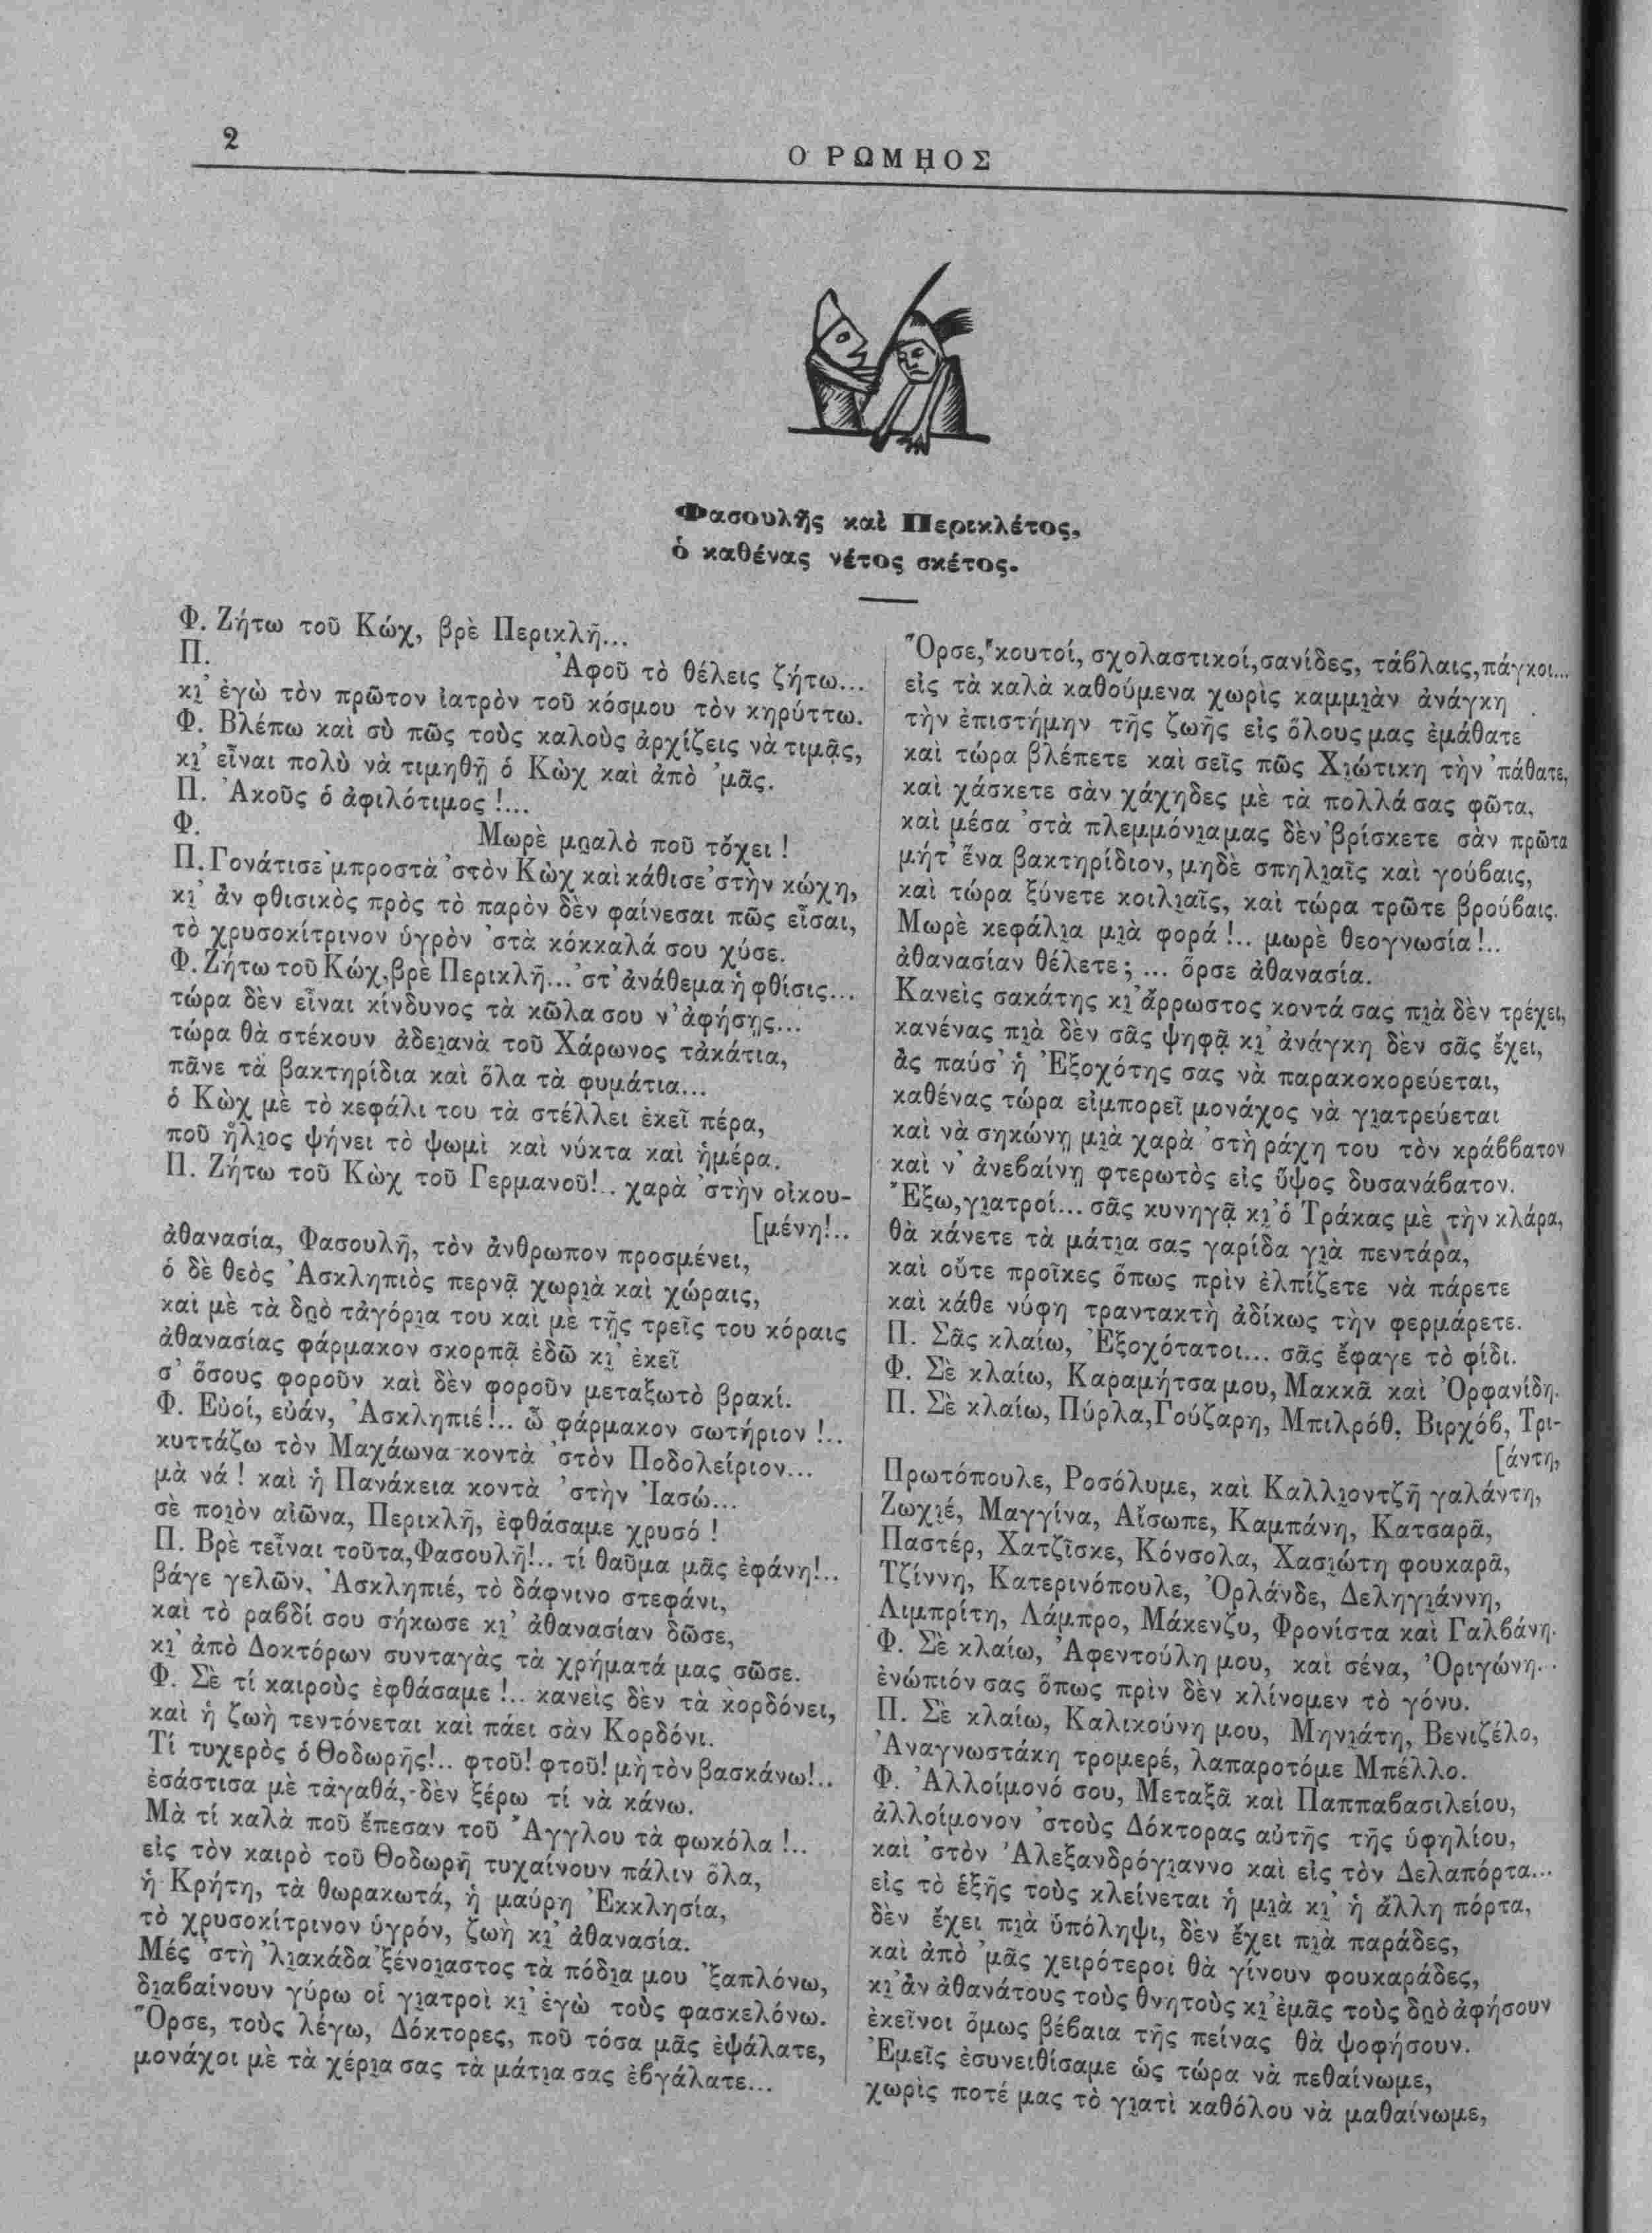 2
Ο ΡΩΜΗΟΣ
Φασουλῆς καὶ Περικλέτος,
ὁ καθένας νέτος σκέτος.
Φ. Ζήτω τοῦ Κώχ, βρὲ Περικλῆ...
Π. Ἀφοῦ τὸ θέλεις ζήτω...
κι̯' ἐγὼ τὸν πρῶτον ἰατρὸν τοῦ κόσμου τὸν κηρύττω.
Φ. Βλέπω καὶ σὺ πῶς τοὺς καλοὺς ἀρχίζεις νὰ τιμᾷς,
κι̯' εἶναι πολὺ νὰ τιμηθῇ ὁ Κὼχ καὶ ἀπὸ 'μᾶς.
Π. Ἀκοῦς ὁ ἀφιλότιμος!...
Φ. Μωρὲ μυ̯αλὸ ποῦ τὄχει!
Π. Γονάτισε 'μπροστὰ 'στὸν Κὼχ καὶ κάθισε 'στὴν κώχη,
κι̯' ἂν φθισικὸς πρὸς τὸ παρὸν δὲν φαίνεσαι πῶς εἶσαι,
τὸ χρυσοκίτρινον ὑγρὸν 'στὰ κόκκαλά σου χύσε.
Φ. Ζήτω τοῦ Κώχ, βρὲ Περικλῆ... 'στ' ἀνάθεμα ἡ φθίσις...
τώρα δὲν εἶναι κίνδυνος τὰ κῶλα σου ν' ἀφήσῃς...
τώρα θὰ στέκουν ἀδει̯ανὰ τοῦ Χάρωνος τἀκάτια,
πᾶνε τὰ βακτηρίδια καὶ ὅλα τὰ φυμάτια...
ὁ Κὼχ μὲ τὸ κεφάλι του τὰ στέλλει ἐκεῖ πέρα,
ποῦ ἥλι̯ος ψήνει τὸ ψωμὶ καὶ νύκτα καὶ ἡμέρα.
Π. Ζήτω τοῦ Κὼχ τοῦ Γερμανοῦ!.. χαρὰ 'στὴν οἰκου-
[μένη!..
ἀθανασία, Φασουλῆ, τὸν ἄνθρωπον προσμένει,
ὁ δὲ θεὸς Ἀσκληπιὸς περνᾷ χωρι̯ὰ καὶ χώραις,
καὶ μὲ τὰ δυ̯ὸ τἀγόρι̯α του καὶ μὲ τῇς τρεῖς του κόραις
ἀθανασίας φάρμακον σκορπᾷ ἐδῶ κι̯' ἐκεῖ
σ' ὅσους φοροῦν καὶ δὲν φοροῦν μεταξωτὸ βρακί.
Φ. Εὐοί, εὐάν, Ἀσκληπιέ!.. ὦ φάρμακον σωτήριον!..
κυττάζω τὸν Μαχάωνα κοντὰ 'στὸν Ποδολείριον...
μὰ νά! καὶ ἡ Πανάκεια κοντὰ 'στὴν Ἰασώ...
σὲ ποι̯ὸν αἰῶνα, Περικλῆ, ἐφθάσαμε χρυσό!
Π. Βρὲ τεἶναι τοῦτα, Φασουλῆ!.. τί θαῦμα μᾶς ἐφάνη!..
βάγε γελῶν, Ἀσκληπιέ, τὸ δάφνινο στεφάνι,
καὶ τὸ ραβδί σου σήκωσε κι̯' ἀθανασίαν δῶσε,
κι̯' ἀπὸ Δοκτόρων συνταγὰς τὰ χρήματά μας σῶσε.
Φ. Σὲ τί καιροὺς ἐφθάσαμε!.. κανεὶς δὲν τὰ κορδόνει,
καὶ ἡ ζωὴ τεντόνεται καὶ πάει σὰν Κορδόνι.
Τί τυχερὸς ὁ Θοδωρῆς!.. φτοῦ! φτοῦ! μὴ τὸν βασκάνω!..
ἐσάστισα μὲ τἀγαθά,-δὲν ξέρω τί νὰ κάνω.
Μὰ τί καλὰ ποῦ ἔπεσαν τοῦ Ἄγγλου τὰ φωκόλα!..
εἰς τὸν καιρὸ τοῦ Θοδωρῆ τυχαίνουν πάλιν ὅλα,
ἡ Κρήτη, τὰ θωρακωτά, ἡ μαύρη Ἐκκλησία,
τὸ χρυσοκίτρινον ὑγρόν, ζωὴ κι̯' ἀθανασία.
Μές 'στὴ 'λι̯ακάδα 'ξένοι̯αστος τὰ πόδι̯α μου 'ξαπλόνω,
δι̯αβαίνουν γύρω οἱ γι̯ατροὶ κι̯' ἐγὼ τοὺς φασκελόνω.
Ὄρσε, τοὺς λέγω, Δόκτορες, ποῦ τόσα μᾶς ἐψάλατε,
μονάχοι μὲ τὰ χέρι̯α σας τὰ μάτι̯α σας ἐβγάλατε...
Ὄρσε, κουτοί, σχολαστικοί, σανίδες, τάβλαις, πάγκοι...
εἰς τὰ καλὰ καθούμενα χωρὶς καμμι̯ὰν ἀνάγκη
τὴν ἐπιστήμην τῆς ζωῆς εἰς ὅλους μας ἐμάθατε
καὶ τώρα βλέπετε καὶ σεῖς πῶς Χι̯ώτικη τὴν 'πάθατε,
καὶ χάσκετε σὰν χάχηδες μὲ τὰ πολλά σας φῶτα,
καὶ μέσα 'στὰ πλεμμόνι̯α μας δὲν 'βρίσκετε σὰν πρῶτα
μήτ' ἕνα βακτηρίδιον, μηδὲ σπηλι̯αῖς καὶ γούβαις,
καὶ τώρα ξύνετε κοιλι̯αῖς, καὶ τώρα τρῶτε βρούβαις.
Μωρὲ κεφάλι̯α μι̯ὰ φορά!.. μωρὲ θεογνωσία!..
ἀθανασίαν θέλετε; ... ὄρσε ἀθανασία.
Κανεὶς σακάτης κι̯' ἄρρωστος κοντά σας πι̯ὰ δὲν τρέχει,
κανένας πι̯ὰ δὲν σᾶς ψηφᾷ κι̯' ἀνάγκη δὲν σᾶς ἔχει,
ἂς παύσ' ἡ Ἐξοχότης σας νὰ παρακοκορεύεται,
καθένας τώρα εἰμπορεῖ μονάχος νὰ γι̯ατρεύεται
καὶ νὰ σηκώνῃ μι̯ὰ χαρὰ 'στὴ ράχη του τὸν κράββατον
καὶ ν' ἀνεβαίνῃ φτερωτὸς εἰς ὕψος δυσανάβατον.
Ἔξω, γι̯ατροί... σᾶς κυνηγᾷ κι̯' ὁ Τράκας μὲ τὴν κλάρα,
θὰ κάνετε τὰ μάτι̯α σας γαρίδα γι̯ὰ πεντάρα,
καὶ οὔτε προῖκες ὅπως πρὶν ἐλπίζετε νὰ πάρετε
καὶ κάθε νύφη τραντακτὴ ἀδίκως τὴν φερμάρετε.
Π. Σᾶς κλαίω, Ἐξοχότατοι... σᾶς ἔφαγε τὸ φίδι.
Φ. Σὲ κλαίω, Καραμήτσα μου, Μακκᾶ καὶ Ὀρφανίδη.
Π. Σὲ κλαίω, Πύρλα, Γούζαρη, Μπιλρόθ, Βιρχόβ, Τρι-
[άντη,
Πρωτόπουλε, Ροσόλυμε, καὶ Καλλι̯οντζῆ γαλάντη,
Ζωχι̯έ, Μαγγίνα, Αἴσωπε, Καμπάνη, Κατσαρᾶ,
Παστέρ, Χατζῖσκε, Κόνσολα, Χασι̯ώτη φουκαρᾶ,
Τζίννη, Κατερινόπουλε, Ὀρλάνδε, Δεληγι̯άννη,
Λιμπρίτη, Λάμπρο, Μάκενζυ, Φρονίστα καὶ Γαλβάνη.
Φ. Σὲ κλαίω, Ἀφεντούλη μου, καὶ σένα, Ὀριγώνη...
ἐνώπιόν σας ὅπως πρὶν δὲν κλίνομεν τὸ γόνυ.
Π. Σὲ κλαίω, Καλικούνη μου, Μηνι̯άτη, Βενιζέλο,
Ἀναγνωστάκη τρομερέ, λαπαροτόμε Μπέλλο.
Φ. Ἀλλοίμονό σου, Μεταξᾶ καὶ Παππαβασιλείου,
ἀλλοίμονον 'στοὺς Δόκτορας αὐτῆς τῆς ὑφηλίου,
καὶ 'στὸν Ἀλεξανδρόγι̯αννο καὶ εἰς τὸν Δελαπόρτα...
εἰς τὸ ἑξῆς τοὺς κλείνεται ἡ μι̯ὰ κι̯' ἡ ἄλλη πόρτα,
δὲν ἔχει πι̯ὰ ὑπόληψι, δὲν ἔχει πι̯ὰ παράδες,
καὶ ἀπὸ 'μᾶς χειρότεροι θὰ γίνουν φουκαράδες,
κι̯' ἂν ἀθανάτους τοὺς θνητοὺς κι̯' ἐμᾶς τοὺς δυ̯ὸ ἀφήσουν
ἐκεῖνοι ὅμως βέβαια τῆς πείνας θὰ ψοφήσουν.
Ἐμεῖς ἐσυνειθίσαμε ὡς τώρα νὰ πεθαίνωμε,
χωρὶς ποτέ μας τὸ γι̯ατὶ καθόλου νὰ μαθαίνωμε,